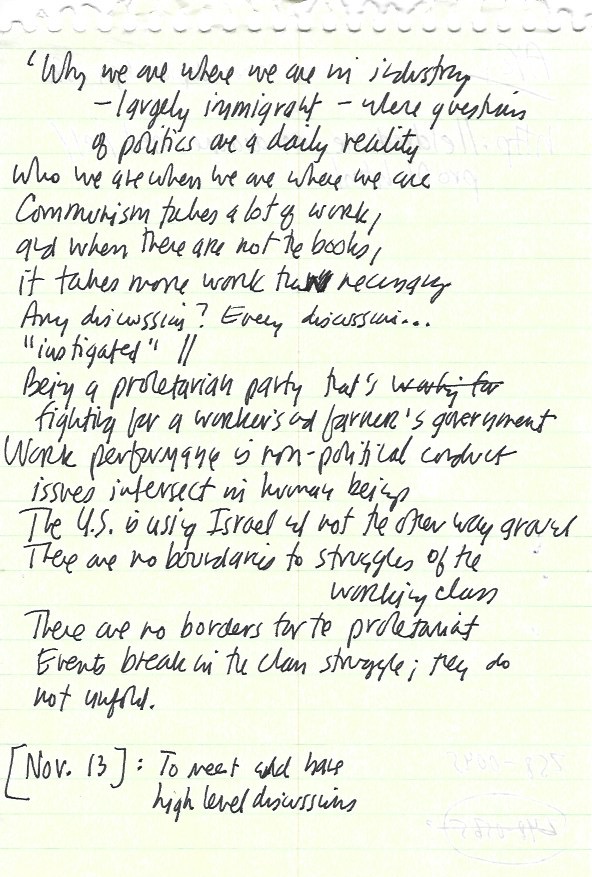 "Why we are where we are in industry
- largely immigrant - where questions
of politics are a daily reality
Who we are when we are where we are
Communism takes a lot of work,
and when there are not the books,
it takes more work than necessary
Any discussion? Every discussion...
"instigated" //
Being a proletarian party that's working for
fighting for a worker's and farmer's government
Work performance is non-political conduct
issues intersect in human beings
The U.S. is using Israel and not the other way around
There are no boundaries to struggles of the
working class
There are no borders for the proletariat
Events break in the class struggle; they do
not unfold.
[Nov. 13]: To meet and have
high level discussions